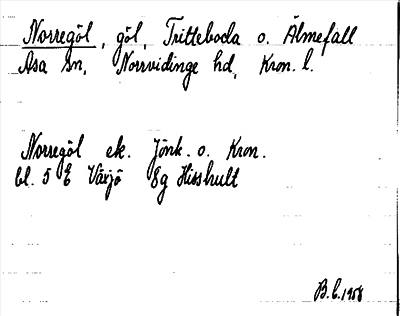 Norregöl, göl, Tritteboda o. Älmefall
Asa sn, Norrvidinge hd, Kron. l.
Norregöl ek. Jönk. o. Kron.
bl. 5 E Växjö 8g Hisshult
B.C. 1958